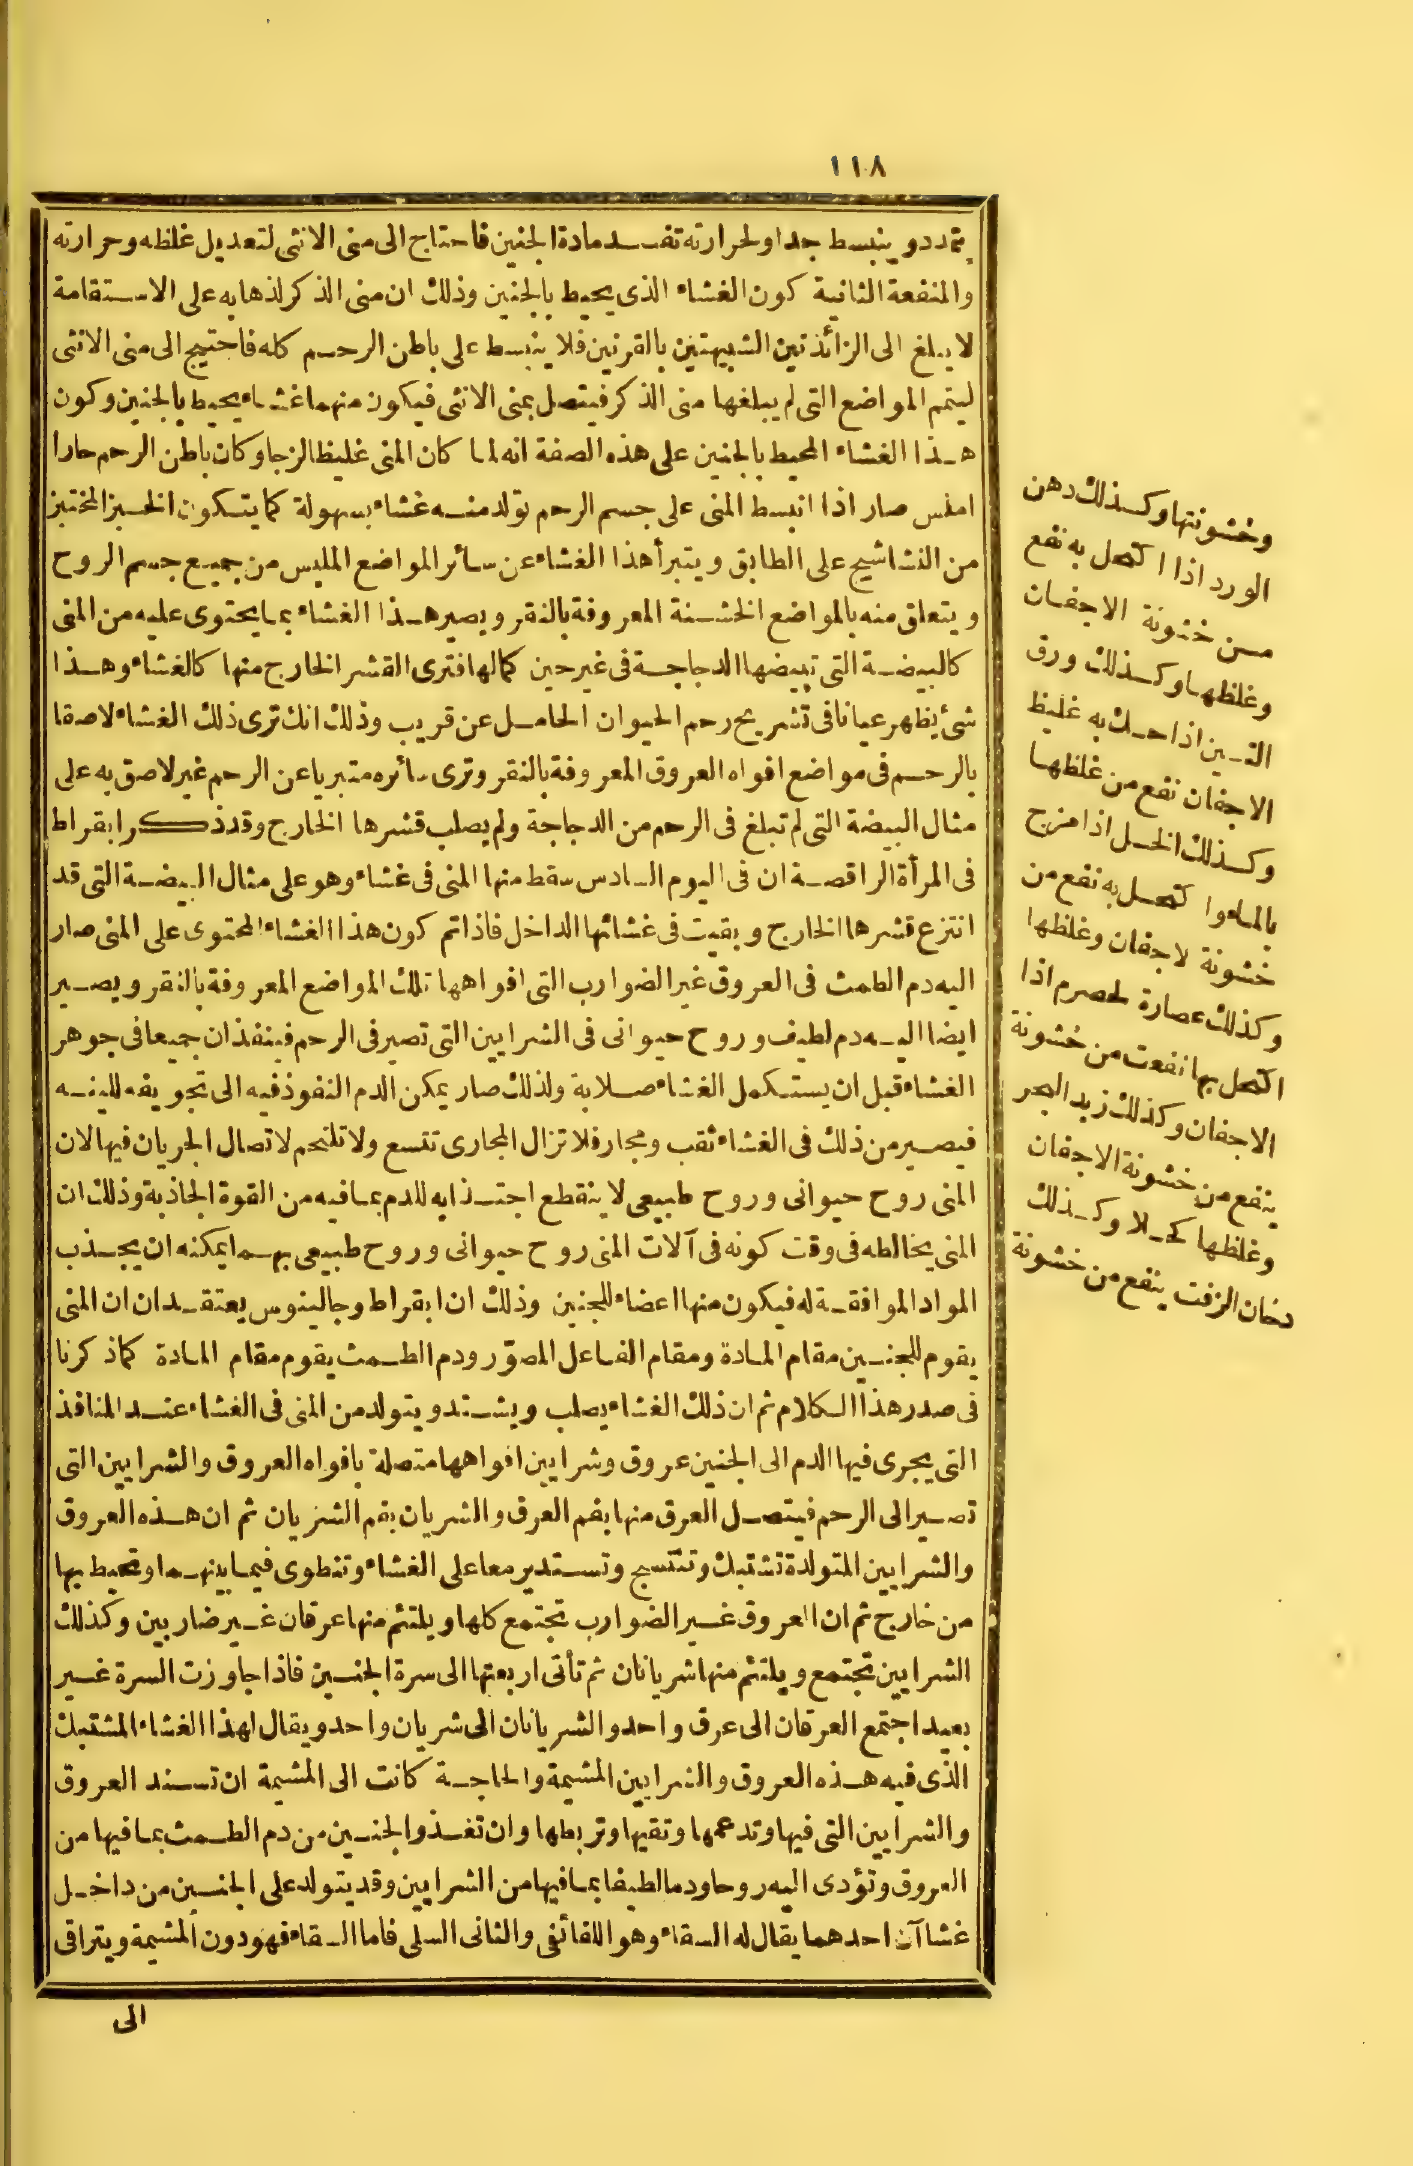 ١١٨
يتمدد وينبسط جدا ولحرارته تفسد مادة الجنين فاحتاج الى منى الانثى لتعديل غلظه وحرارته
والمنفعة الثانية كون الغشاء الذى يحيط بالجنين وذلك ان منى الذكر لذهابه على الاستقامة
لا يبلغ الى الزائدتين الشبيهتين بالقرنين فلا ينبسط على باطن الرحم كله فاحتيج الى منى الانثى
ليتمم المواضع التى لم يبلغها منى الذكر فيتصل بمنى الانثى فيكون منهما غشاء يحيط بالجنين وكون
هذا الغشاء المحيط بالجنين على هذه الصفة انه لما كان المنى غليظا لزجا وكان باطن الرحم حارا
املس صار اذا انبسط المنى على جسم الرحم تولد منه غشاء بسهولة كما يتكون الخبز المختبز
من النشاشيج على الطابق ويتبرأ هذا الغشاء عن سائر المواضع المليس من جميع جسم الروح
ويتعلق منه بالمواضع الخشنة المعروفة بالنقر ويصير هذا الغشاء بما يحتوى عليه من المنى
كالبيضة التى تبيضها الدجاجة فى غير حين كمالها فترى القشر الخارج منها كالغشاء وهذا
شئ يظهر عيانا فى تشريح رحم الحيوان الحامل عن قريب وذلك انك ترى ذلك الغشاء لاصقا
بالرحم فى مواضع افواه العروق المعروفة بالنقر وترى سائره متبريا عن الرحم غير لاصق به على
مثال البيضة التى لم تبلغ فى الرحم من الدجاجة ولم يصلب قشرها الخارج وقد ذكر ابقراط
فى المرأة الراقصة ان فى اليوم السادس سقط منها المنى فى غشاء وهو على مثال البيضة التى قد
انتزع قشرها الخارج وبقيت فى غشائها الداخل فاذا تم كون هذا الغشاء المحتوى على المنى صار
اليه دم الطمث فى العروق غير الضوارب التى افواهها تلك المواضع المعروفة بالنقر ويصير
ايضا اليه دم لطيف وروح حيوانى فى الشرايين التى تصير فى الرحم فينفذان جميعا فى جوهر
الغشاء قبل ان يستكمل الغشاء صلابة ولذلك صار يمكن الدم النفوذ فيه الى تجويفه للينه
فيصير من ذلك فى الغشاء ثقب ومجار فلا تزال المجارى تتسع ولا تلتحم لاتصال الجريان فيها لان
المنى روح حيوانى وروح طبيعى لا ينقطع اجتذابه للدم بما فيه من القوة الجاذبة وذلك ان
المنى يخالطه فى وقت كونه فى آلات المنى روح حيوانى وروح طبيعى بهما يمكنه ان يجذب
المواد الموافقة له فيكون منها اعضاء للجنين وذلك ان ابقراط وجالينوس يعتقدان ان المنى
يقوم للجنين مقام المادة ومقام الفاعل المصوّر ودم الطمث يقوم مقام المادة كما ذكرنا
فى صدر هذا الكلام ثم ان ذلك الغشاء يصلب ويشتد ويتولد من المنى فى الغشاء عند المنافذ
التى يجرى فيها الدم الى الجنين عروق وشرايين افواهها متصلة بافواه العروق والشرايين التى
تصير الى الرحم فيتصل العرق منها بفم العرق والشريان بفم الشريان ثم ان هذه العروق
والشرايين المتولدة تشتبك وتنتسج وتستدير معا على الغشاء وتنطوى فيما بينهما وتحيط بها
من خارج ثم ان العروق غير الضوارب تجتمع كلها ويلتئم منها عرقان غير ضاربين وكذلك
الشرايين تجتمع ويلتئم منها شريانان ثم تأتى اربعتها الى سرة الجنين فاذا جاوزت السرة غير
بعيد اجتمع العرقان الى عرق واحد والشريانان الى شريان واحد ويقال لهذا الغشاء المشتبك
الذى فيه هذه العروق والشرايين المشيمة والحاجة كانت الى المشيمة ان تسند العروق
والشرايين التى فيها وتدعمها وتقيها وتربطها وان تغذو الجنين من دم الطمث بما فيها من
العروق وتؤدى اليه روحا ودما لطيفا بما فيها من الشرايين وقد يتولد على الجنين من داخل
غشاآن احدهما يقال له السقاء وهو اللفائفى والثانى السلى فاما السقاء فهو دون المشيمة ويتراقى
الى
وخشونتها وكذلك دهن
الورد اذا اكتحل به نفع
من خشونة الاجفان
وغلظها وكذلك ورق
التين اذا حك به غليظ
الاجفان نفع من غلظها
وكذلك الخل اذا مزج
بالماء واكتحل به نفع من
خشونة لاجفان وغلظها
وكذلك عصارة لحصرم اذا
اكتحل بها نفعت من خشونة
الاجفان وكذلك زبد البحر
ينفع من خشونة الاجفان
وغلظها كحلا وكذلك
دخان الزفت ينفع من خشونة